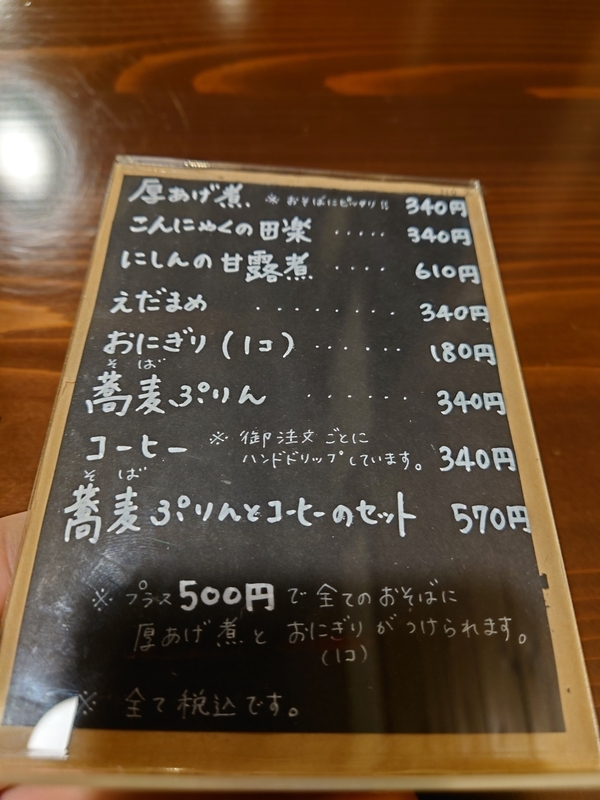 厚あげ煮、 ※おそばにピッタリ!! 340円
こんにゃくの田楽 ..... 340円
にしんの甘露煮 .... 610円
えだまめ ........ 340円
おにぎり(1コ) ...... 180円
そば
蕎麦ぷりん ....... 340円
コーヒー ※御注文ごとに
ハンドドリップしています。 340円
そば
蕎麦ぷりんとコーヒーのセット 570円
※プラス500円で全てのおそばに
厚あげ煮とおにぎりがつけられます。
(1コ)
※ 全て税込です。